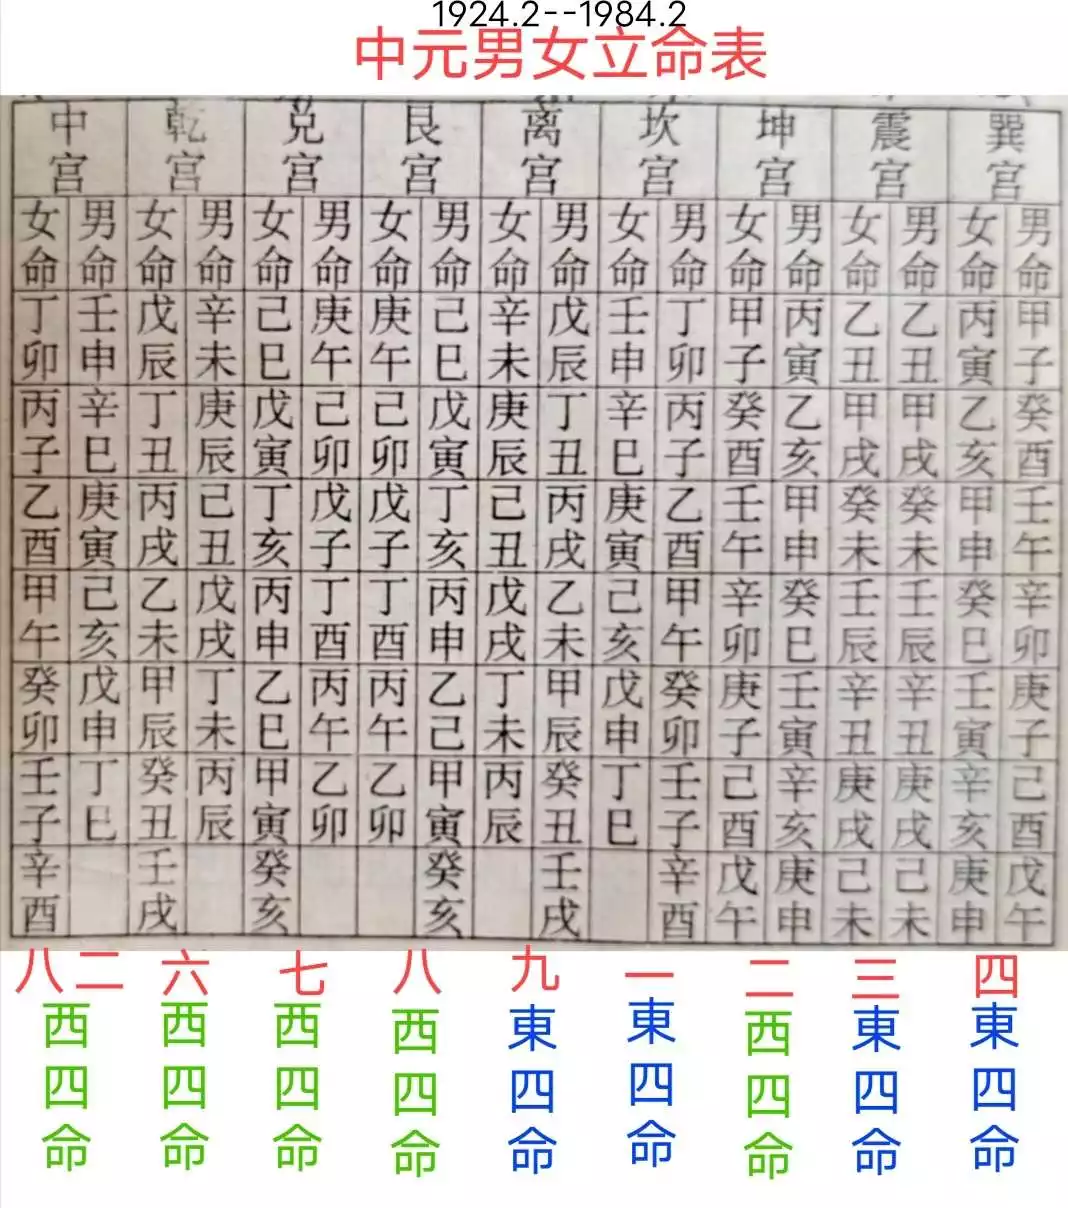 1924.2--1984.2
中元男女立命表
中宫 乾宫 兑宫 艮宫 离宫 坎宫 坤宫 震宫 巽宫
女命 男命 女命 男命 女命 男命 女命 男命 女命 男命 女命 男命 女命 男命 女命 男命 女命 男命
丁卯 壬申 戊辰 辛未 己巳 庚午 庚午 己巳 辛未 戊辰 壬申 丁卯 甲子 丙寅 乙丑 乙丑 丙寅 甲子
丙子 辛巳 丁丑 庚辰 戊寅 己卯 己卯 戊寅 庚辰 丁丑 辛巳 丙子 癸酉 乙亥 甲戌 甲戌 乙亥 癸酉
乙酉 庚寅 丙戌 己丑 丁亥 戊子 戊子 丁亥 己丑 丙戌 庚寅 乙酉 壬午 甲申 癸未 癸未 甲申 壬午
甲午 己亥 乙未 戊戌 丙申 丁酉 丁酉 丙申 戊戌 乙未 己亥 甲午 辛卯 癸巳 壬辰 壬辰 癸巳 辛卯
癸卯 戊申 甲辰 丁未 乙巳 丙午 丙午 乙己 丁未 甲辰 戊申 癸卯 庚子 壬寅 辛丑 辛丑 壬寅 庚子
壬子 丁巳 癸丑 丙辰 甲寅 乙卯 乙卯 甲寅 丙辰 癸丑 丁巳 壬子 己酉 辛亥 庚戌 庚戌 辛亥 己酉
辛酉 壬戌 癸亥 癸亥 壬戌 辛酉 戊午 庚申 己未 己未 庚申 戊午
八二 六 七 八 九 一 二 三 四
西四命 西四命 西四命 西四命 東四命 東四命 西四命 東四命 東四命